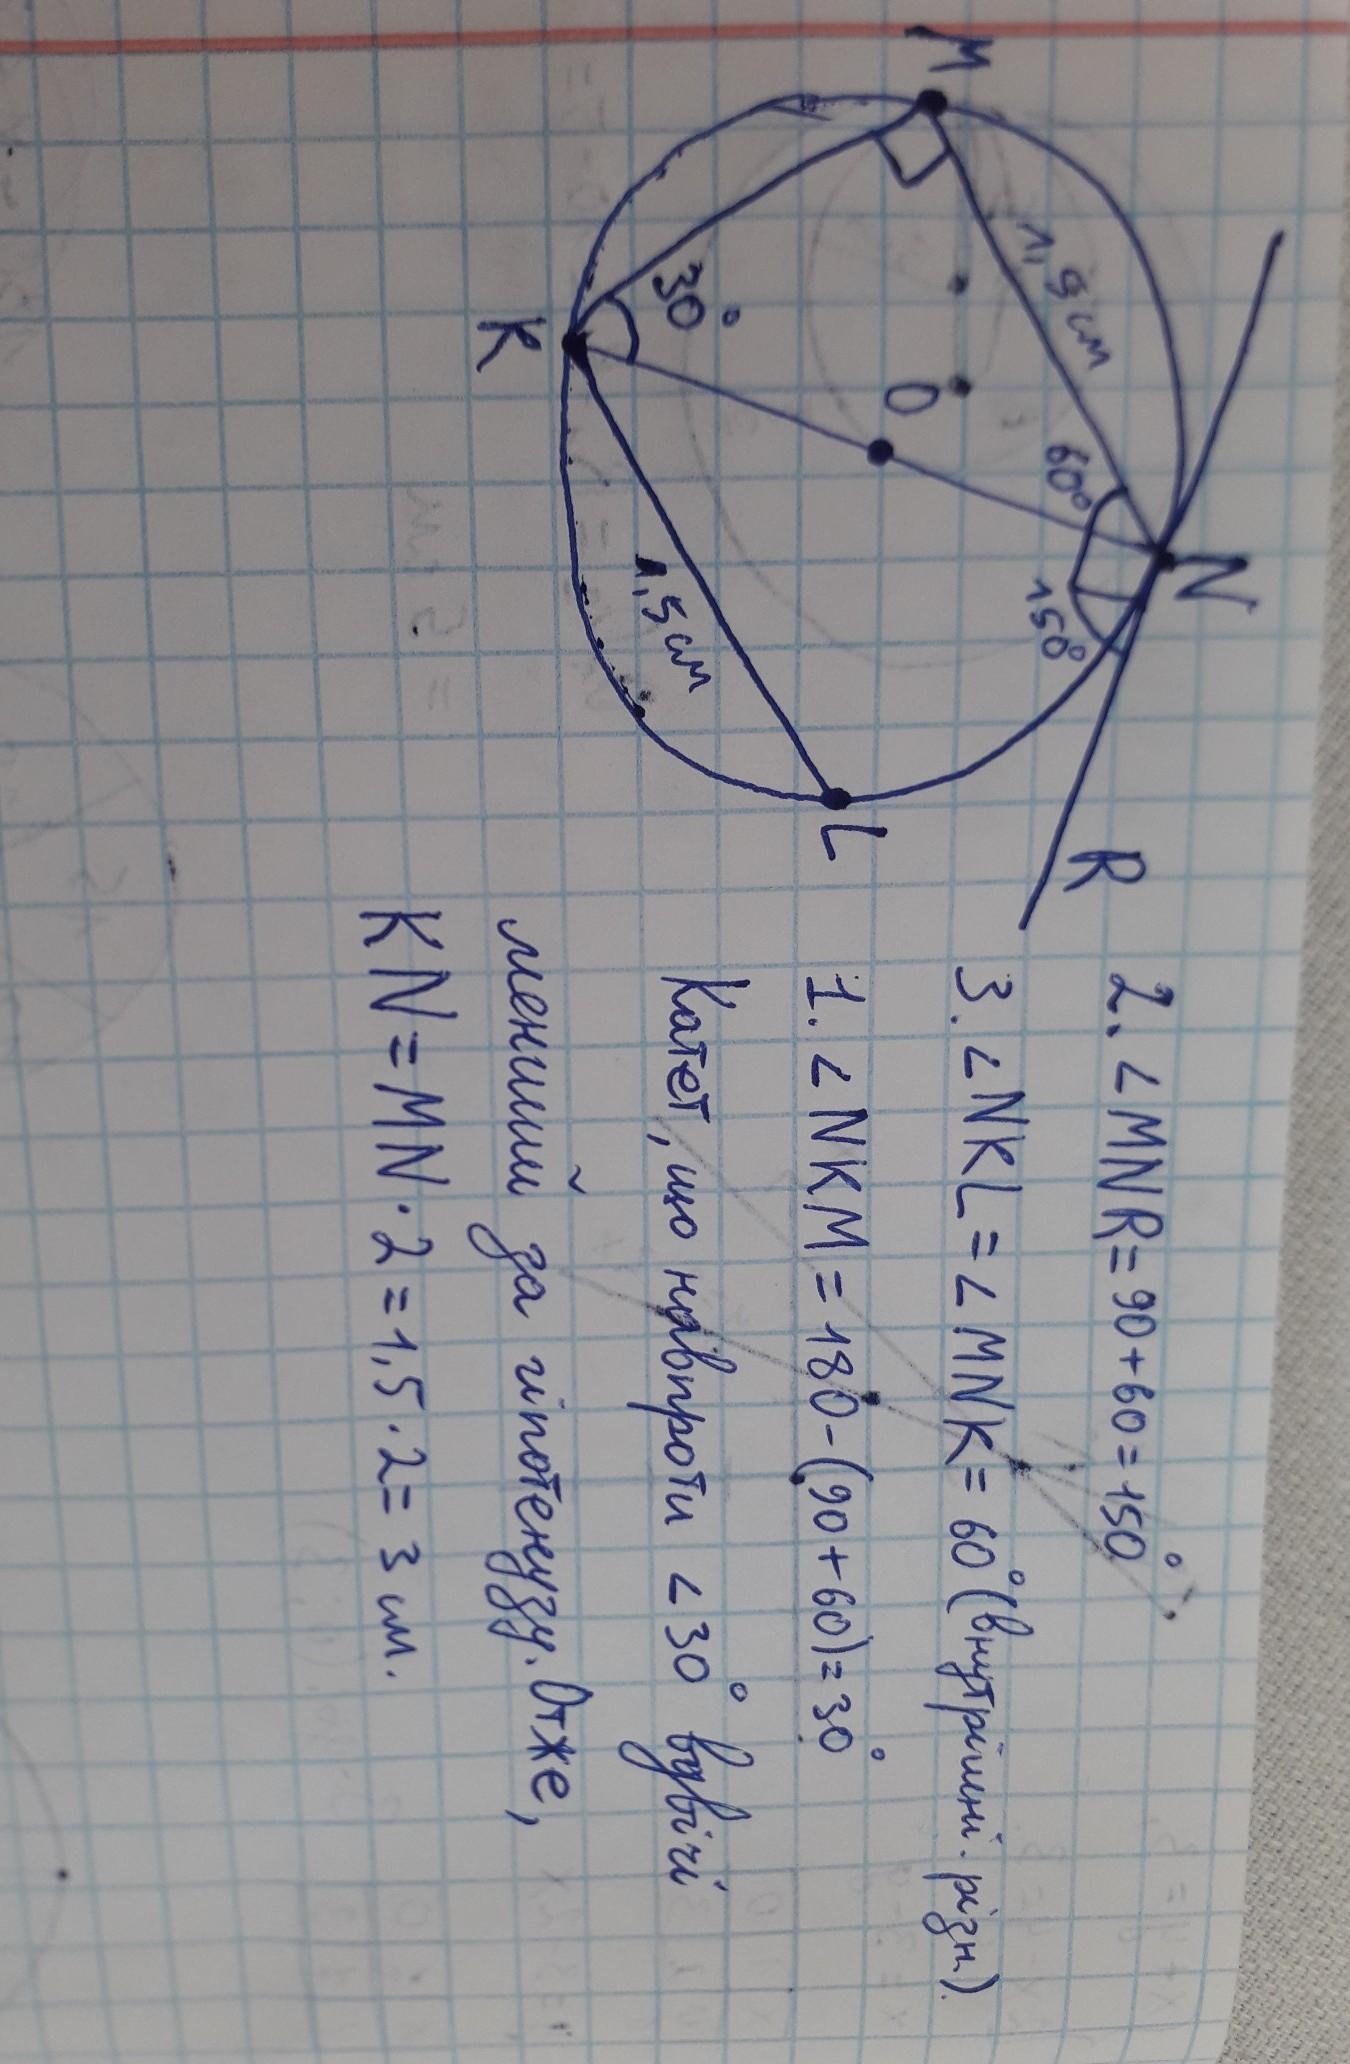 M
N
K
L
R
O
1,5 см
1,5 см
30°
60°
150°
2. ∠MNR=90+60=150°
3. ∠NKL=∠MNK=60°(внутрішні різн).
1. ∠NKM=180-(90+60)=30°
Катет, що навпроти ∠30° вдвічі
менший за гіпотенузу. Отже,
KN=MN·2=1,5·2=3 см.